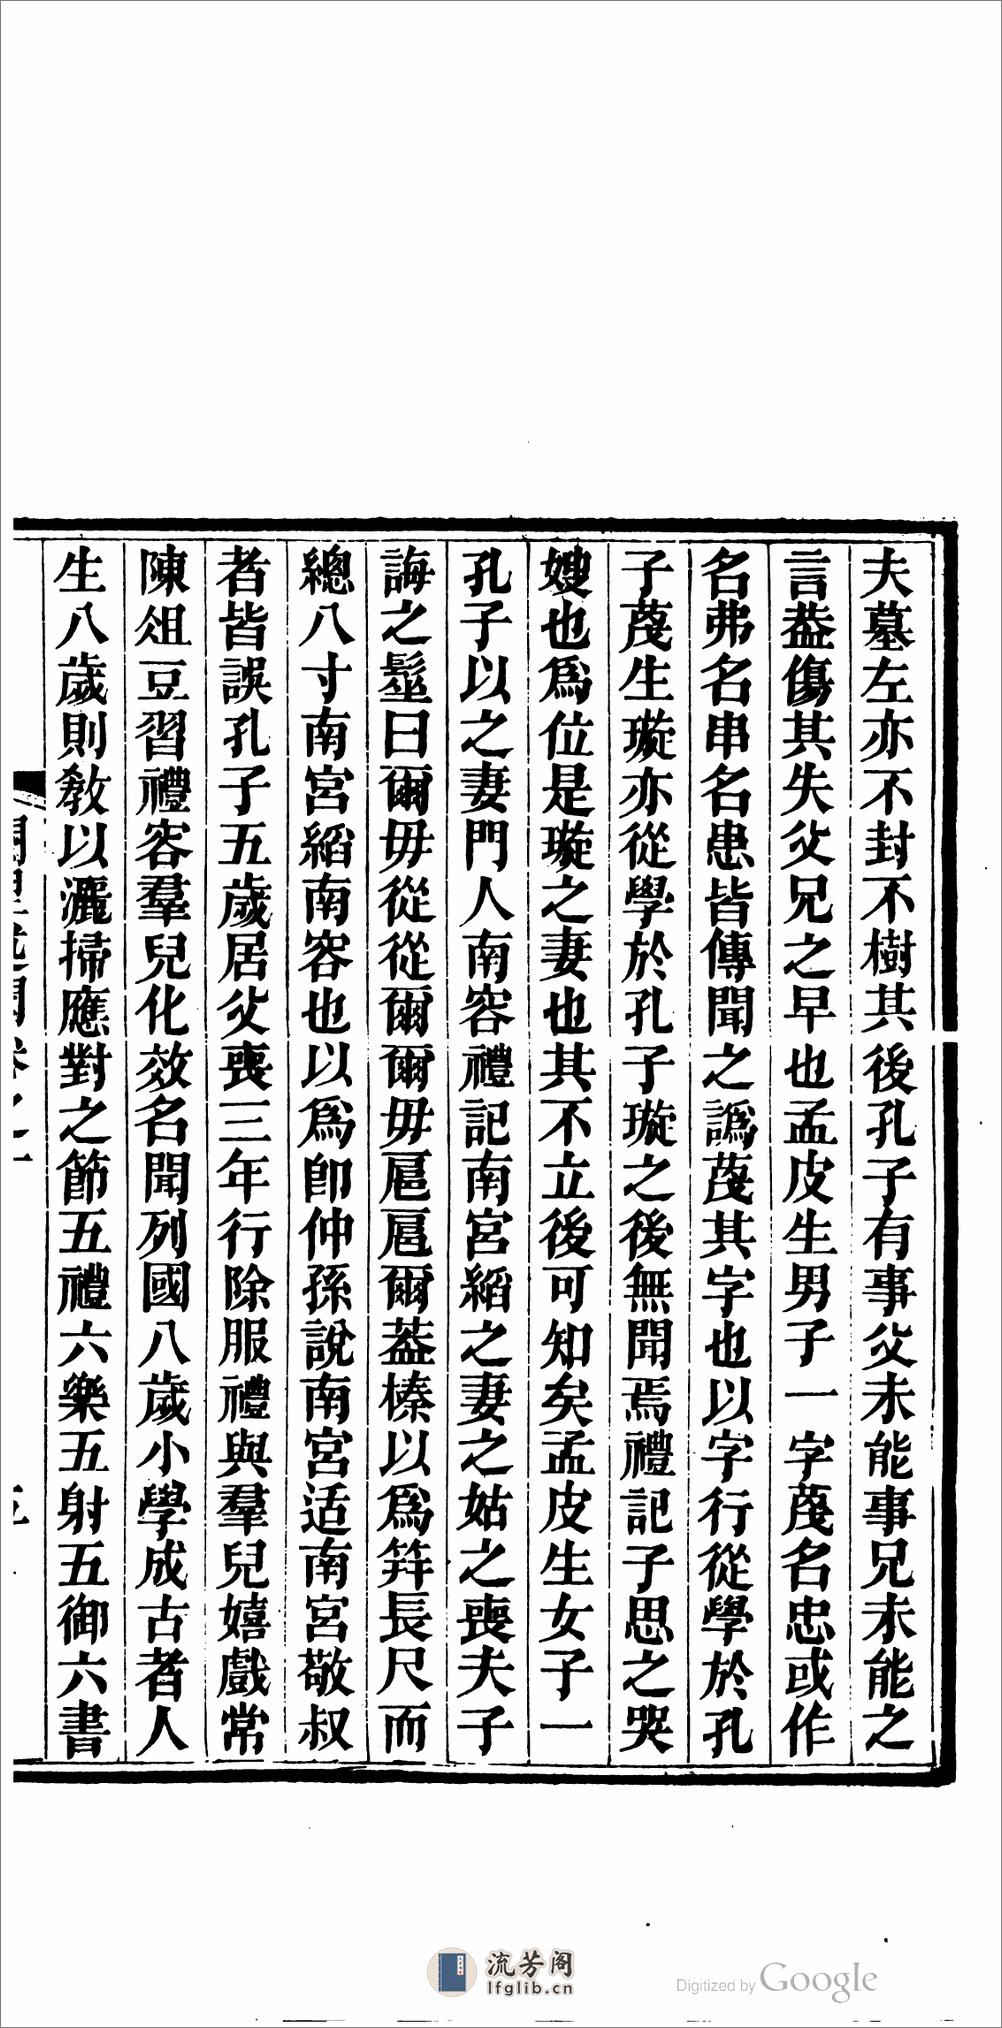 夫墓左亦不封不樹其後孔子有事父未能事兄未能之
言葢傷其失父兄之早也孟皮生男子一字蔑名忠或作
名弗名串名患皆傳聞之譌蔑其字也以字行從學於孔
子蔑生璇亦從學於孔子璇之後無聞焉禮記子思之哭
嫂也爲位是璇之妻也其不立後可知矣孟皮生女子一
孔子以之妻門人南容禮記南宮縚之妻之姑之喪夫子
誨之髽曰爾毋從從爾爾毋扈扈爾葢榛以爲筓長尺而
總八寸南宮縚南容也以爲卽仲孫說南宮适南宮敬叔
者皆誤孔子五歲居父喪三年行除服禮與羣兒嬉戲常
陳俎豆習禮容羣兒化效名聞列國八歲小學成古者人
生八歲則教以灑掃應對之節五禮六樂五射五御六書
流芳阁
lfglib.cn
Digitized by Google